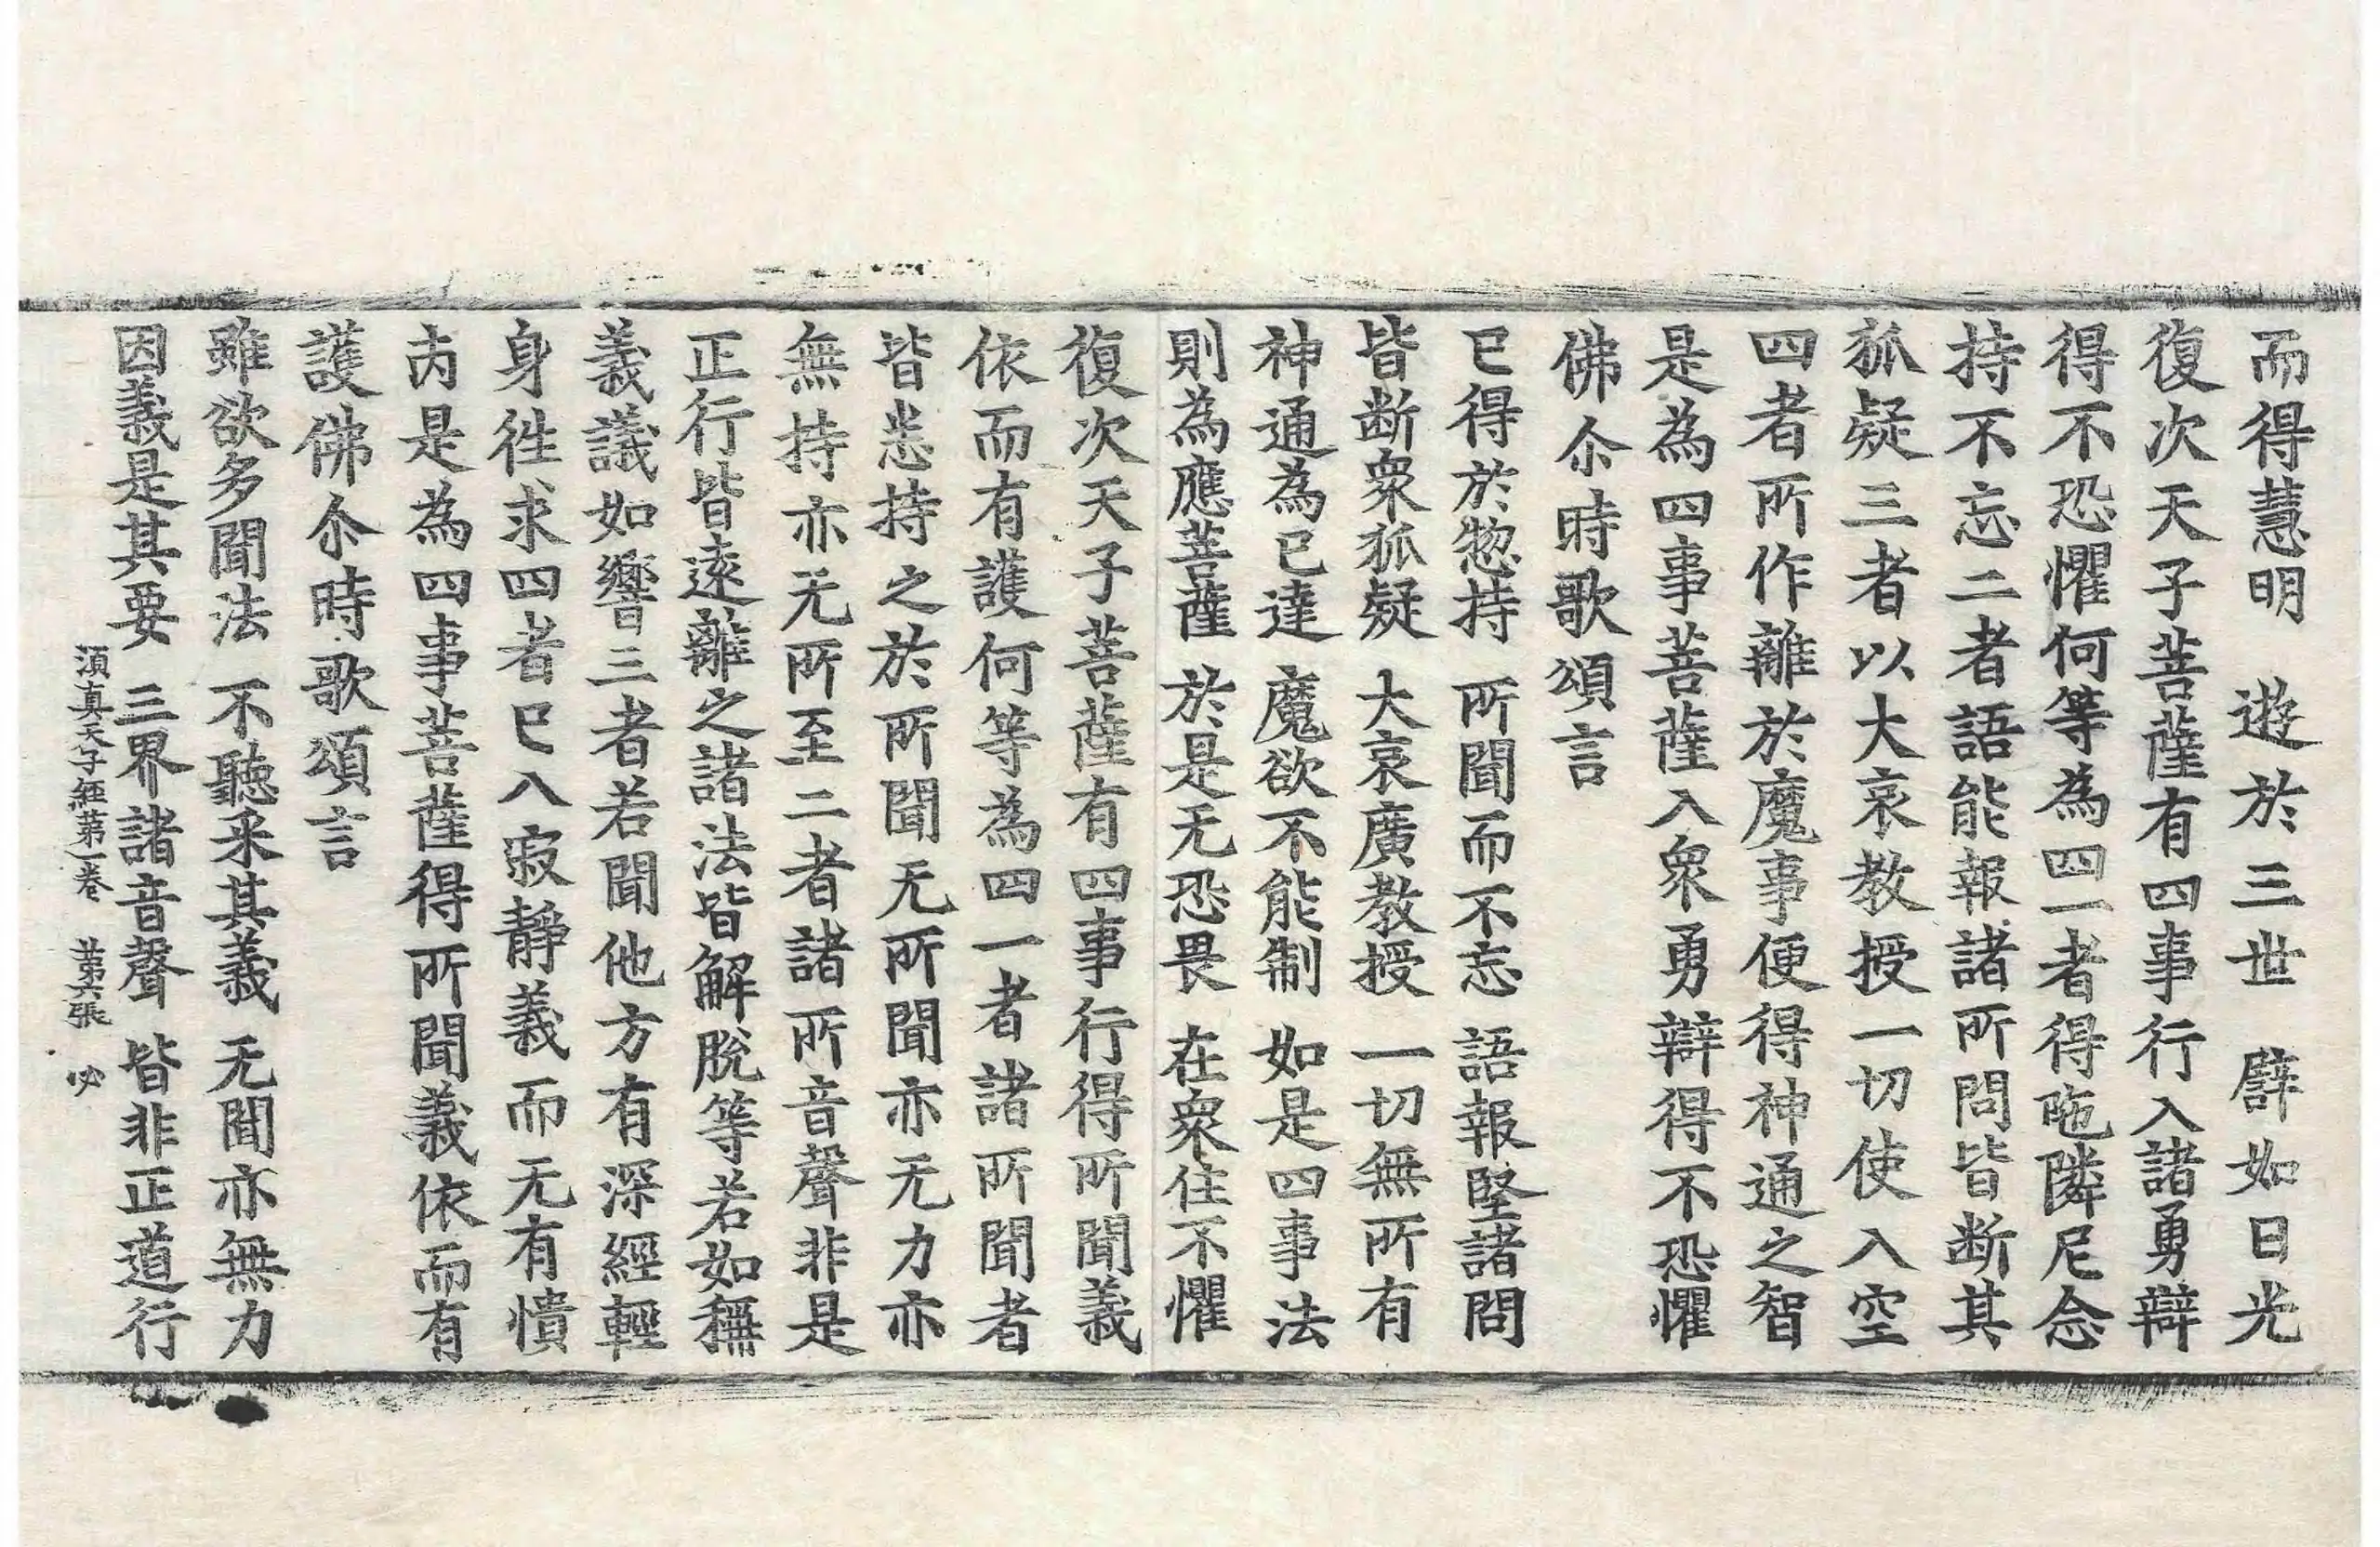 而得慧明　遊於三世　辟如日光
復次天子菩薩有四事行入諸勇辯
得不恐懼何等為四一者得陁隣尼念
持不忘二者語能報諸所問皆断其
狐疑三者以大哀教授一切使入空
四者所作離於魔事便得神通之智
是為四事菩薩入衆勇辯得不恐懼
佛尒時歌頌言
已得於惣持　所聞而不忘　語報堅諸問
皆断衆狐疑　大哀廣教授　一切無所有
神通為已達　魔欲不能制　如是四事法
則為應菩薩　於是无恐畏　在衆住不懼
復次天子菩薩有四事行得所聞義
依而有護何等為四一者諸所聞者
皆悉持之於所聞无所聞亦无力亦
無持亦无所至二者諸所音聲非是
正行皆遠離之諸法皆解脫等若如稱
義議如響三者若聞他方有深經輕
身徃求四者已入寂靜義而无有憒
内是為四事菩薩得所聞義依而有
護佛尒時歌頌言
雖欲多聞法　不聽釆其義　无聞亦無力
因義是其要　三界諸音聲　皆非正道行
須真天子經苐一卷　苐六張